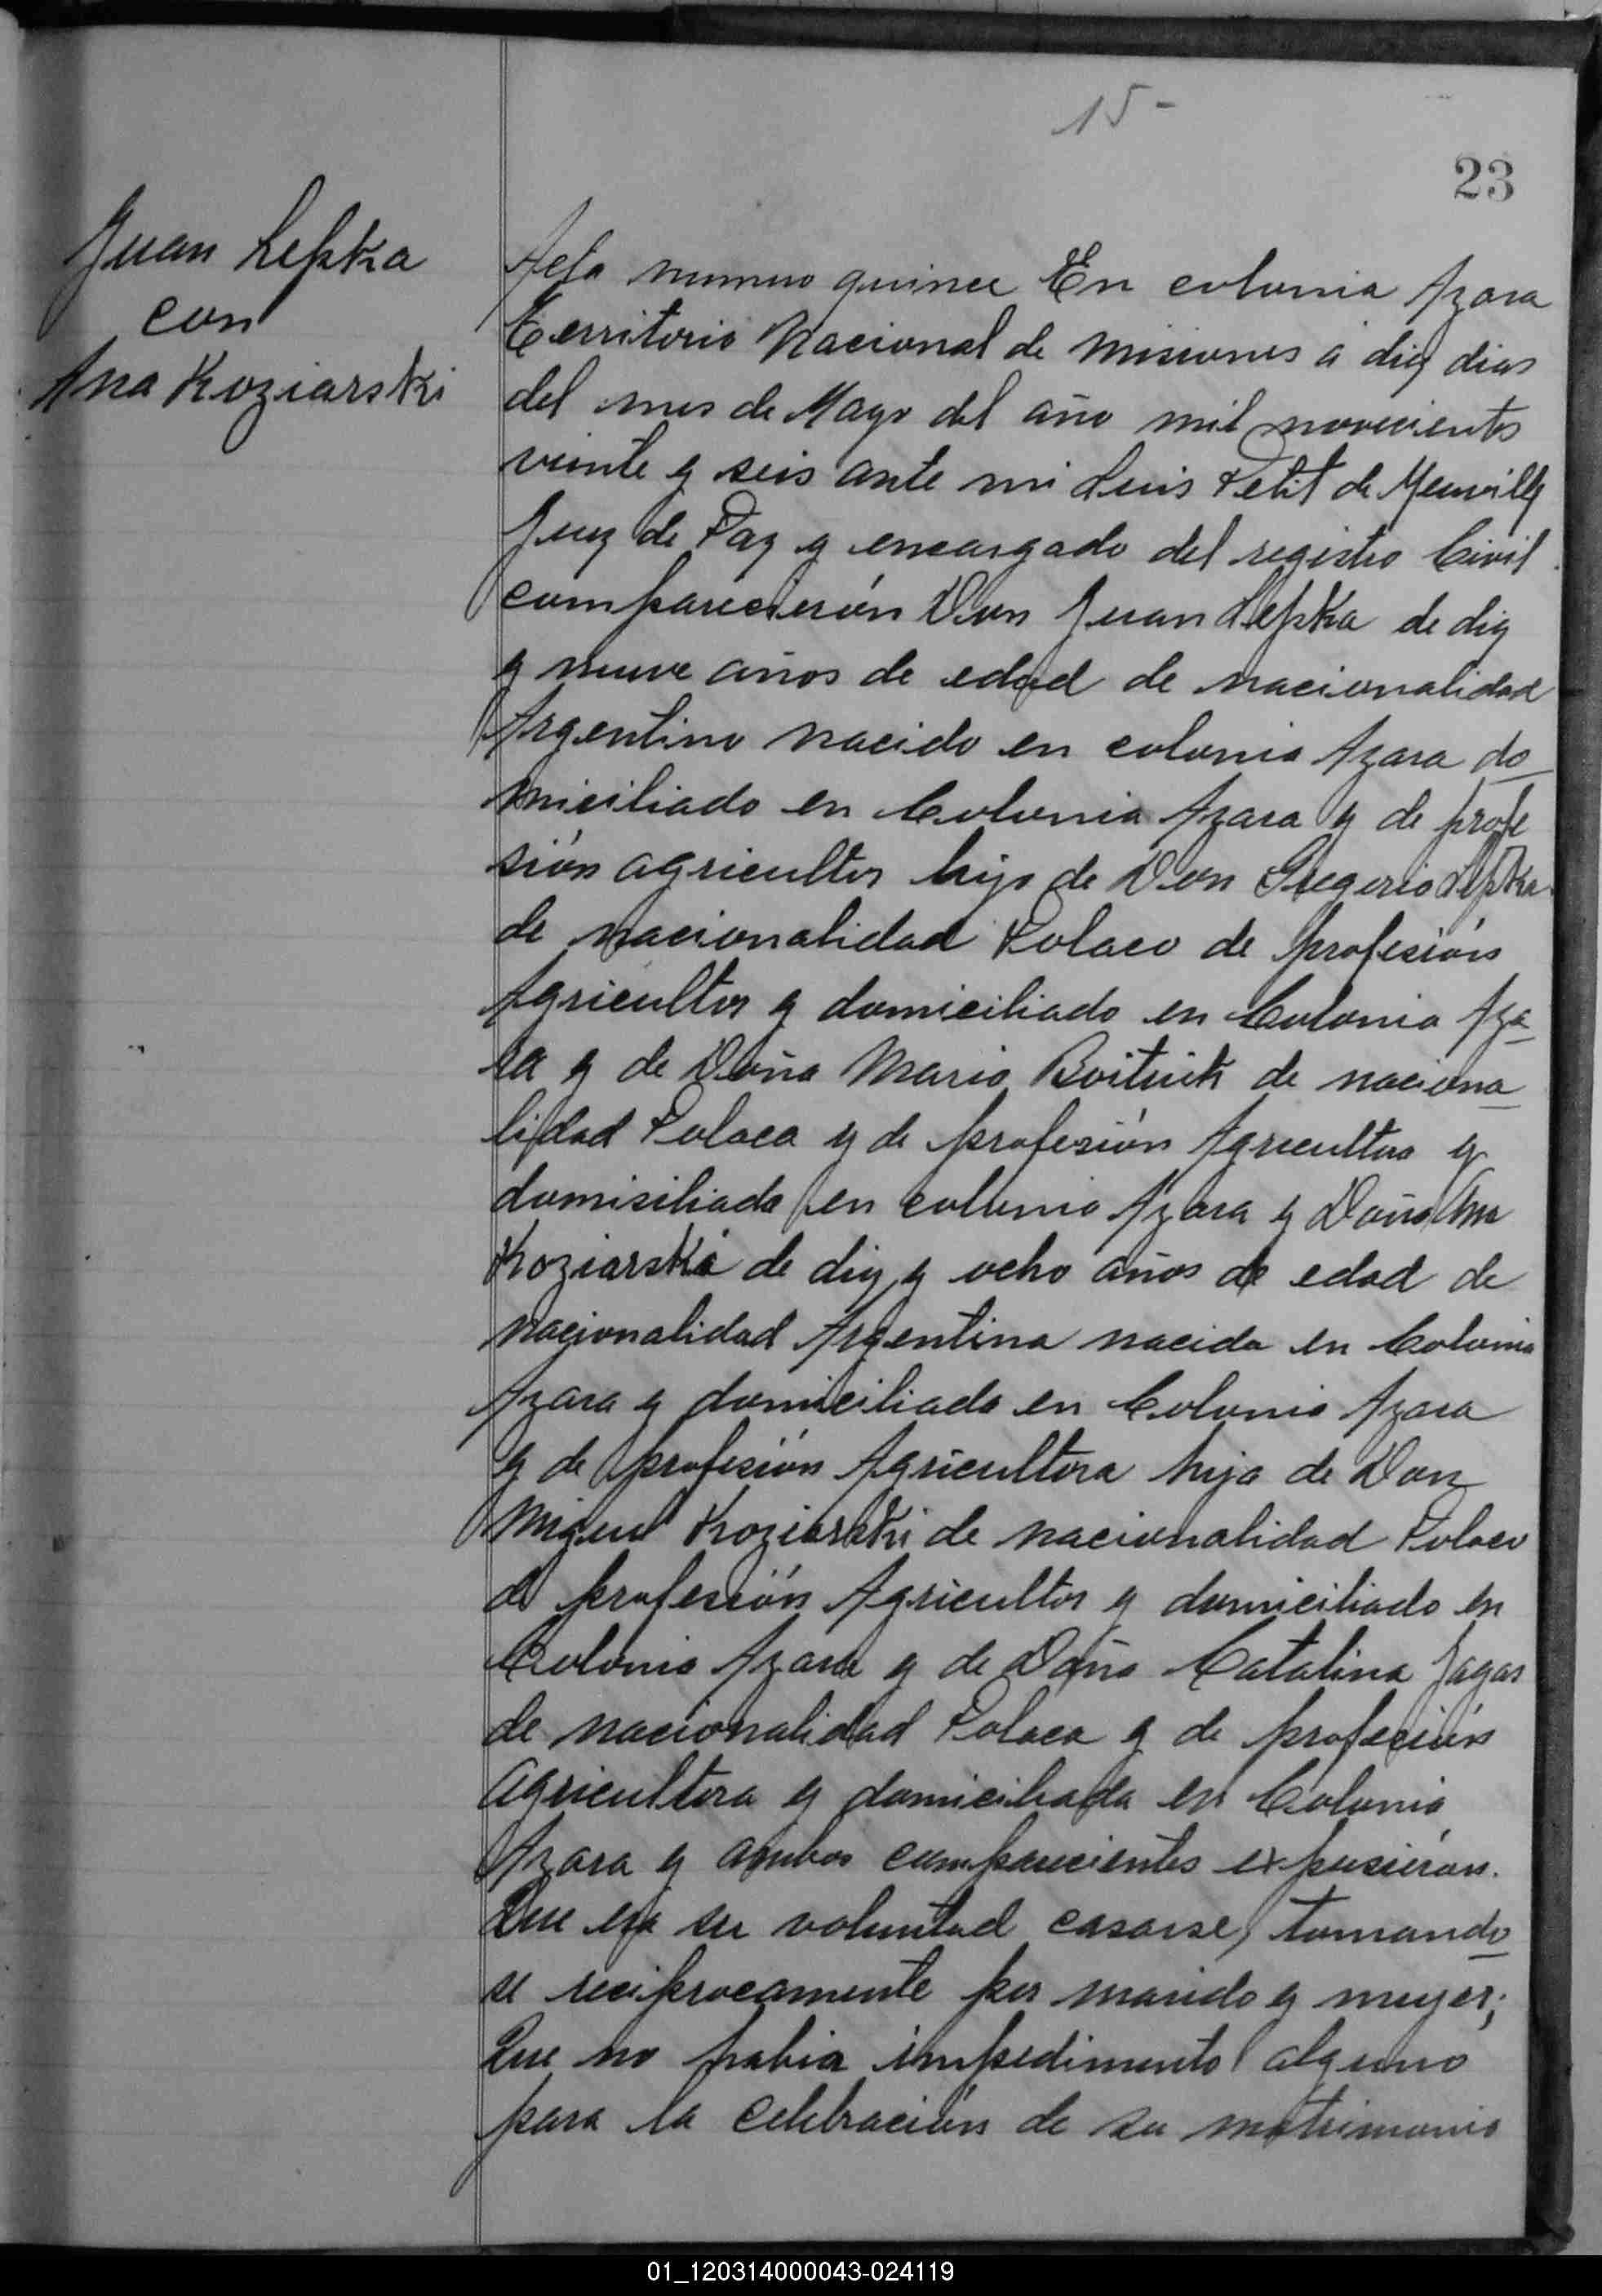 15-
23
Juan Lepka
con
Ana Koziarski
Acta numero quince En colonia Azara
Territorio Nacional de Misiones a diez dias
del mes de Mayo del año mil novecientos
veinte y seis ante mi Luis Petit de Meurville
Juez de Paz y encargado del registro Civil
comparecierón Don Juan Lepka de diez
y nueve años de edad de nacionalidad
Argentino nacido en colonia Azara do
miciliado en Colonia Azara y de profe
sión agricultor hijo de Don Gregorio Lepka
de nacionalidad Polaco de profesión
Agricultor y domiciliado en Colonia Aza
ra y de Doña Maria de naciona
lidad Polaca y de profesión Agricultora y
domisiliada en colonia Azara y Doña Ana
Koziarska de diez y ocho años de edad de
nacionalidad Argentina nacida en Colonia
Azara y domiciliada en Colonia Azara
y de profesión Agricultora hija de Don
Miguel Koziarski de nacionalidad Polaco
de profesión Agricultor y domiciliado en
Colonia Azara y de Doña Catalina Jagas
de nacionalidad Polaca y de profeción
agricultora y domiciliada en Colonia
Azara y ambos comparecientes expusierón.
Que era su voluntad casarse, tomando
se reciprocamente por marido y muyer;
Que no habia impedimento alguno
para la celebración de su matrimonio
01_120314000043-024119